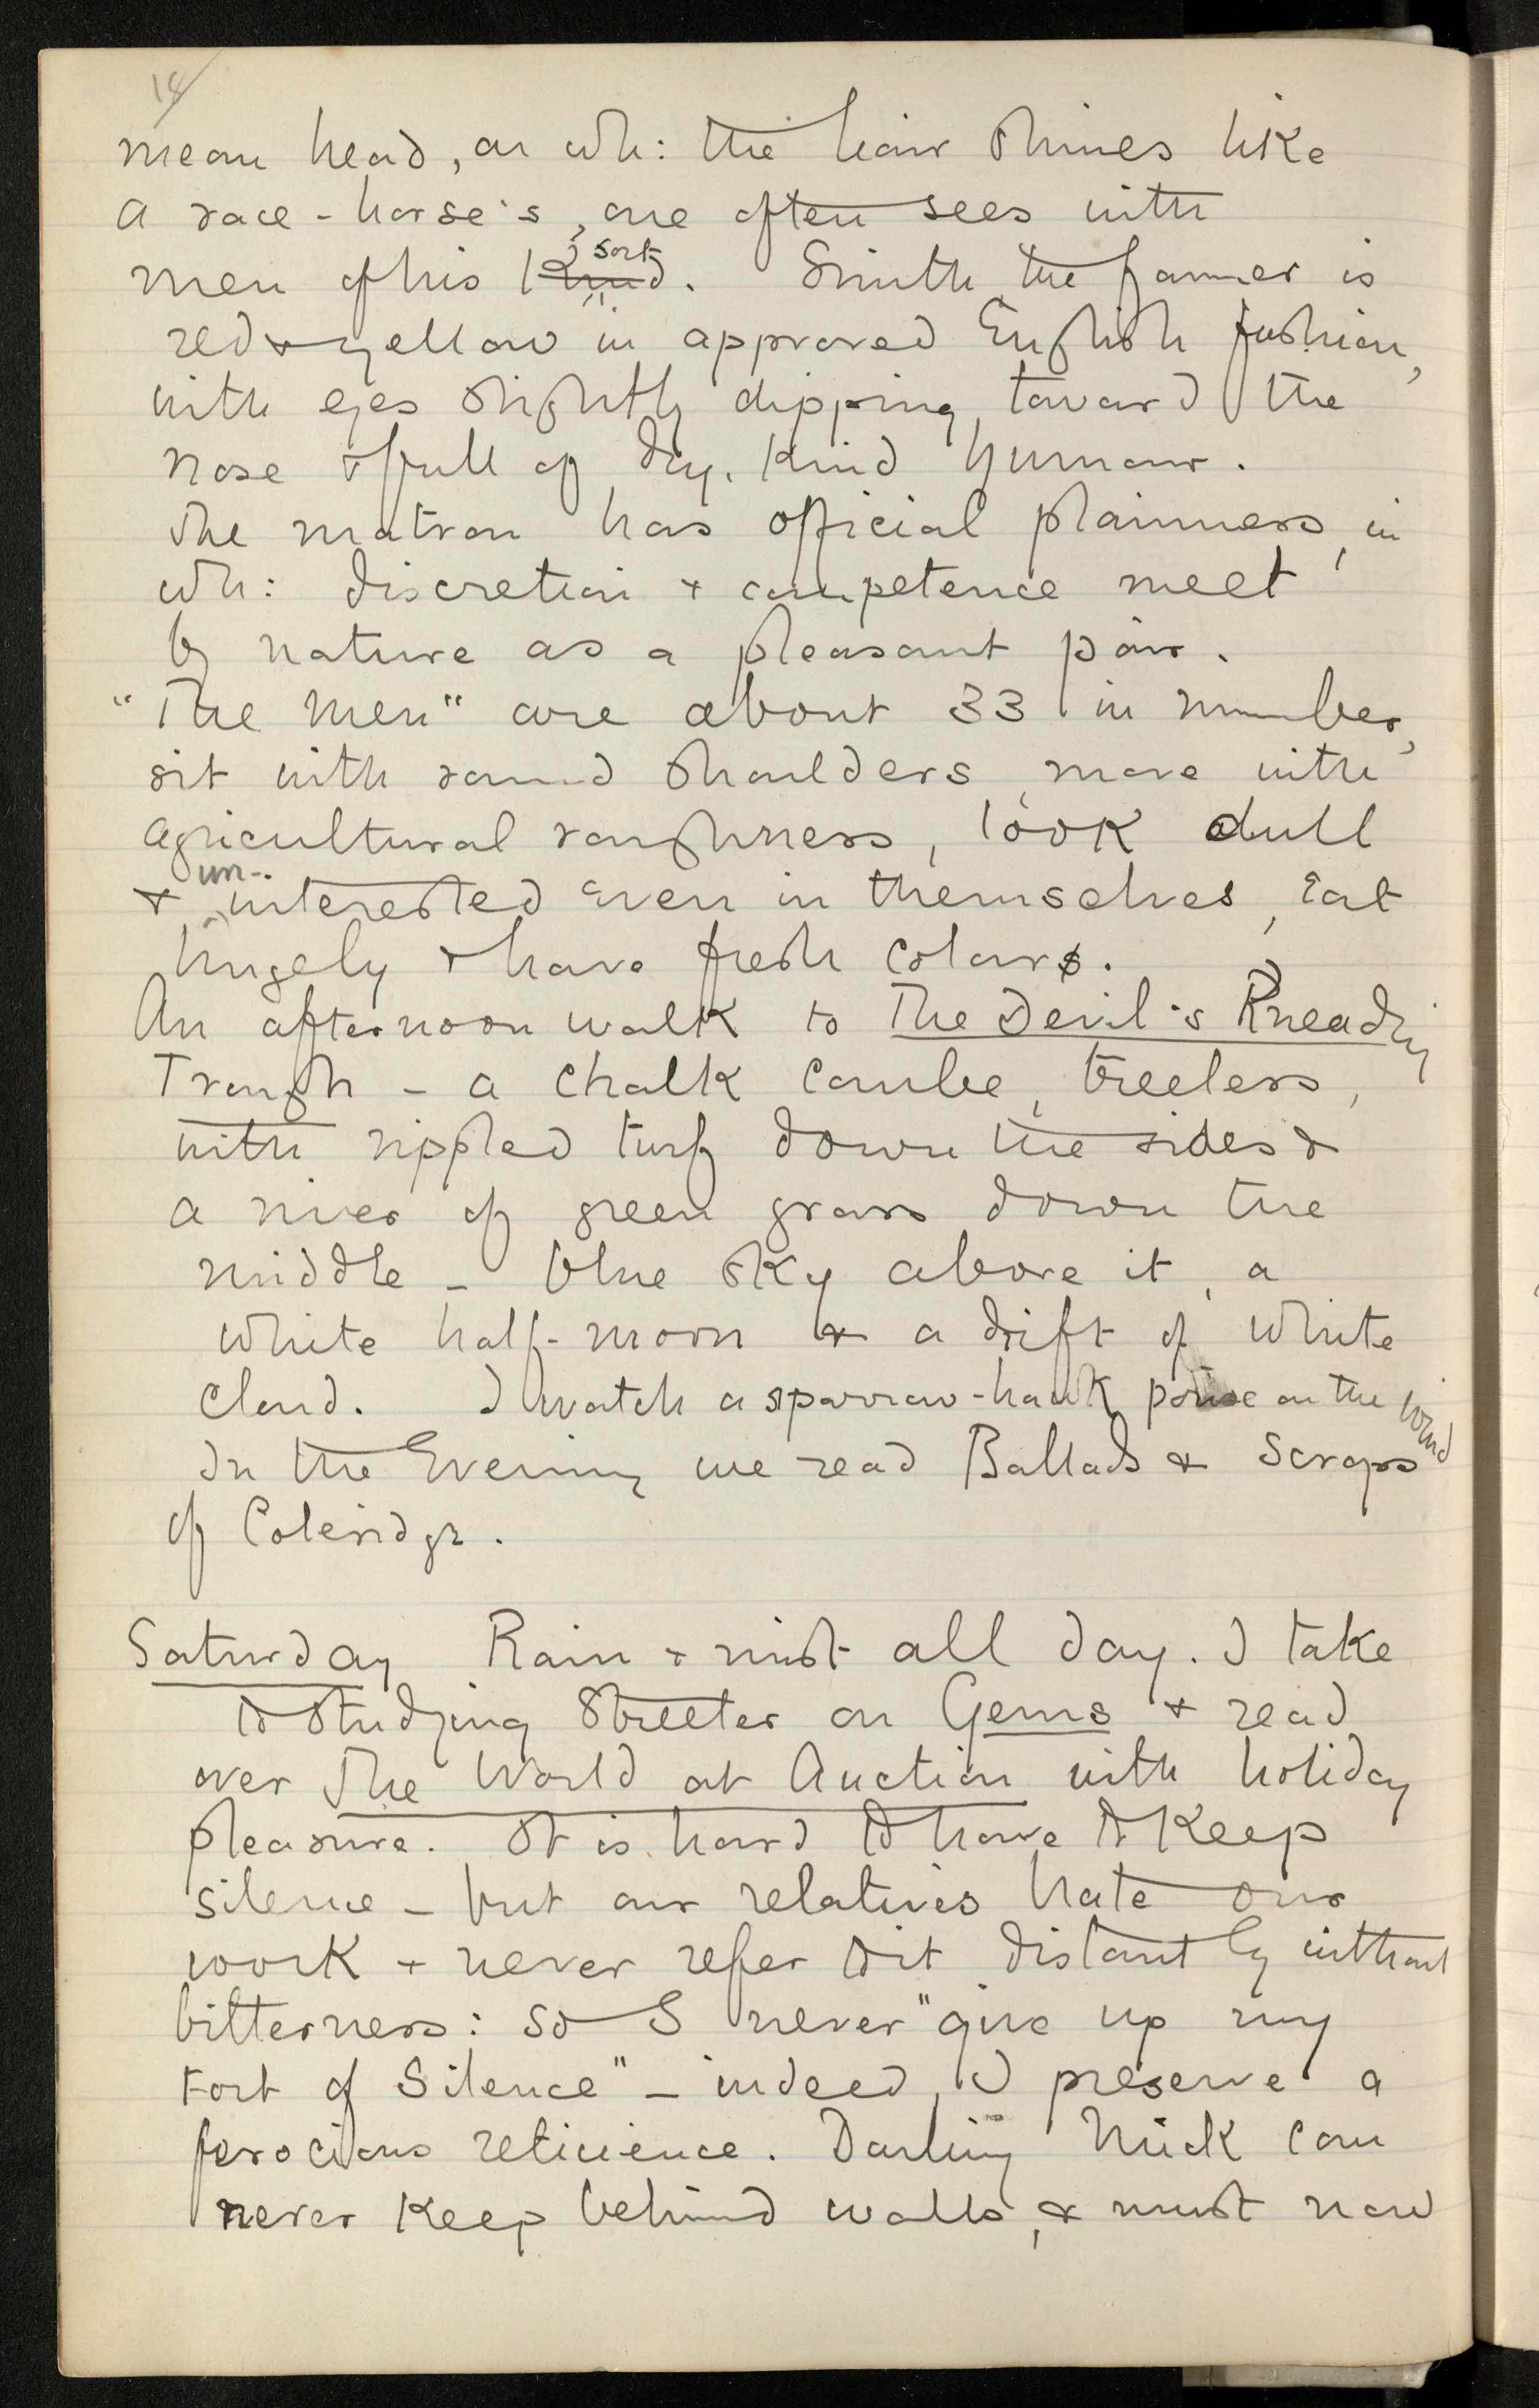 18
mean head, on wh: the hair shines like
a race-horse's, one often sees with
men of his kind. sort Smith the farmer is
red & yellow in approved English fashion,
with eyes slightly dipping toward the
nose & full of dry, kind humour.
The matron has official plainness, in
wh: discretion & competence meet
by nature as a pleasant pair.
"The men" are about 33 in number,
sit with round shoulders, move with
agricultural roughness, look dull
& un-interested even in themselves, eat
hugely & have fresh colours.
An afternoon walk to The Devil's Kneading
Trough - a chalk combe, treeless,
with rippled turf down the sides &
a river of green grass down the
middle - blue sky above it, a
white half-moon & a drift of white
cloud. I watch a sparrow-hawk poise on the wind
In the Evening we read Ballads & scraps
of Coleridge.
Saturday Rain & mist all day. I take
to studying Streeter on Gems & read
over The World at Auction with holiday
pleasure. It is hard to have to keep
silence - but our relatives hate our
work & never refer to it distantly without
bitterness: so I never "give up my
Fort of Silence" - indeed, I preserve a
ferocious reticience. Darling Mick can
never keep behind walls, & must now